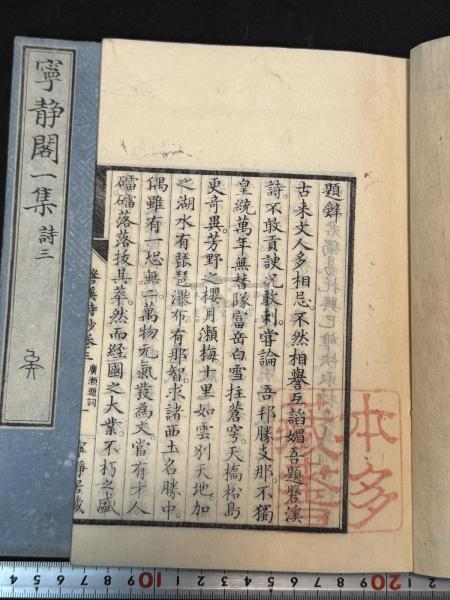 寧静閣一集 詩三
題辤
古来文人多相忌。不然相譽互謟媚。吾題磐溪
詩。不敢貢諛况敢刺。嘗論 吾邦勝支那。不獨
皇統萬年無替隊。富岳白雪拄蒼穹。天橋松島
更奇異。芳野之櫻月瀬梅。十里如雲別天地。加
之湖水有琵琶。瀑布有那智。求諸西土名勝中。
偶雖有一坒無二。萬物元氣發為文。當有才人
礌礌落落拔其萃。然而経國之大業。不朽之盛
磐溪詩鈔卷三 廣瀬題詞 一 寧静居蔵
本多
蔵書
10
20